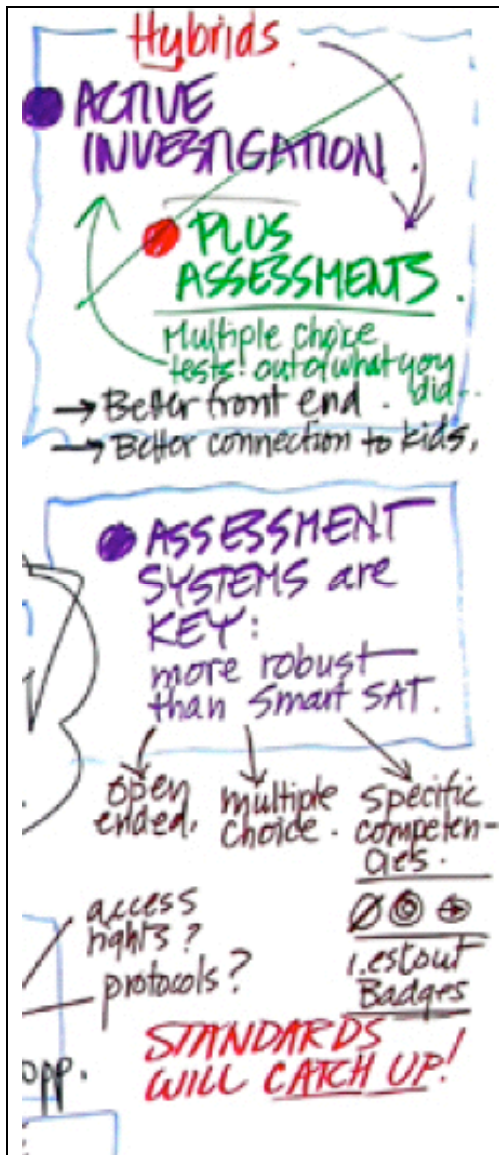 Hybrids.
ACTIVE
INVESTIGATION.
PLUS
ASSESSMENTS.
Multiple choice
tests: out of what you
did..
→ Better front end.
→ Better connection to kids.
ASSESSMENT
SYSTEMS are
KEY:
more robust
than Smart SAT.
open
ended.
multiple
choice.
specific
competen-
cies.
access
rights?
protocols?
Badges
STANDARDS
WILL CATCH UP!
opp.